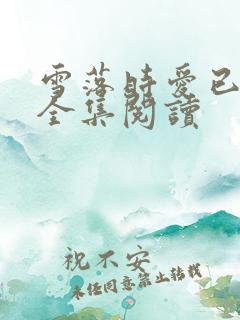 雪落時愛已
全集閱讀
祝不安
未經同意禁止轉載